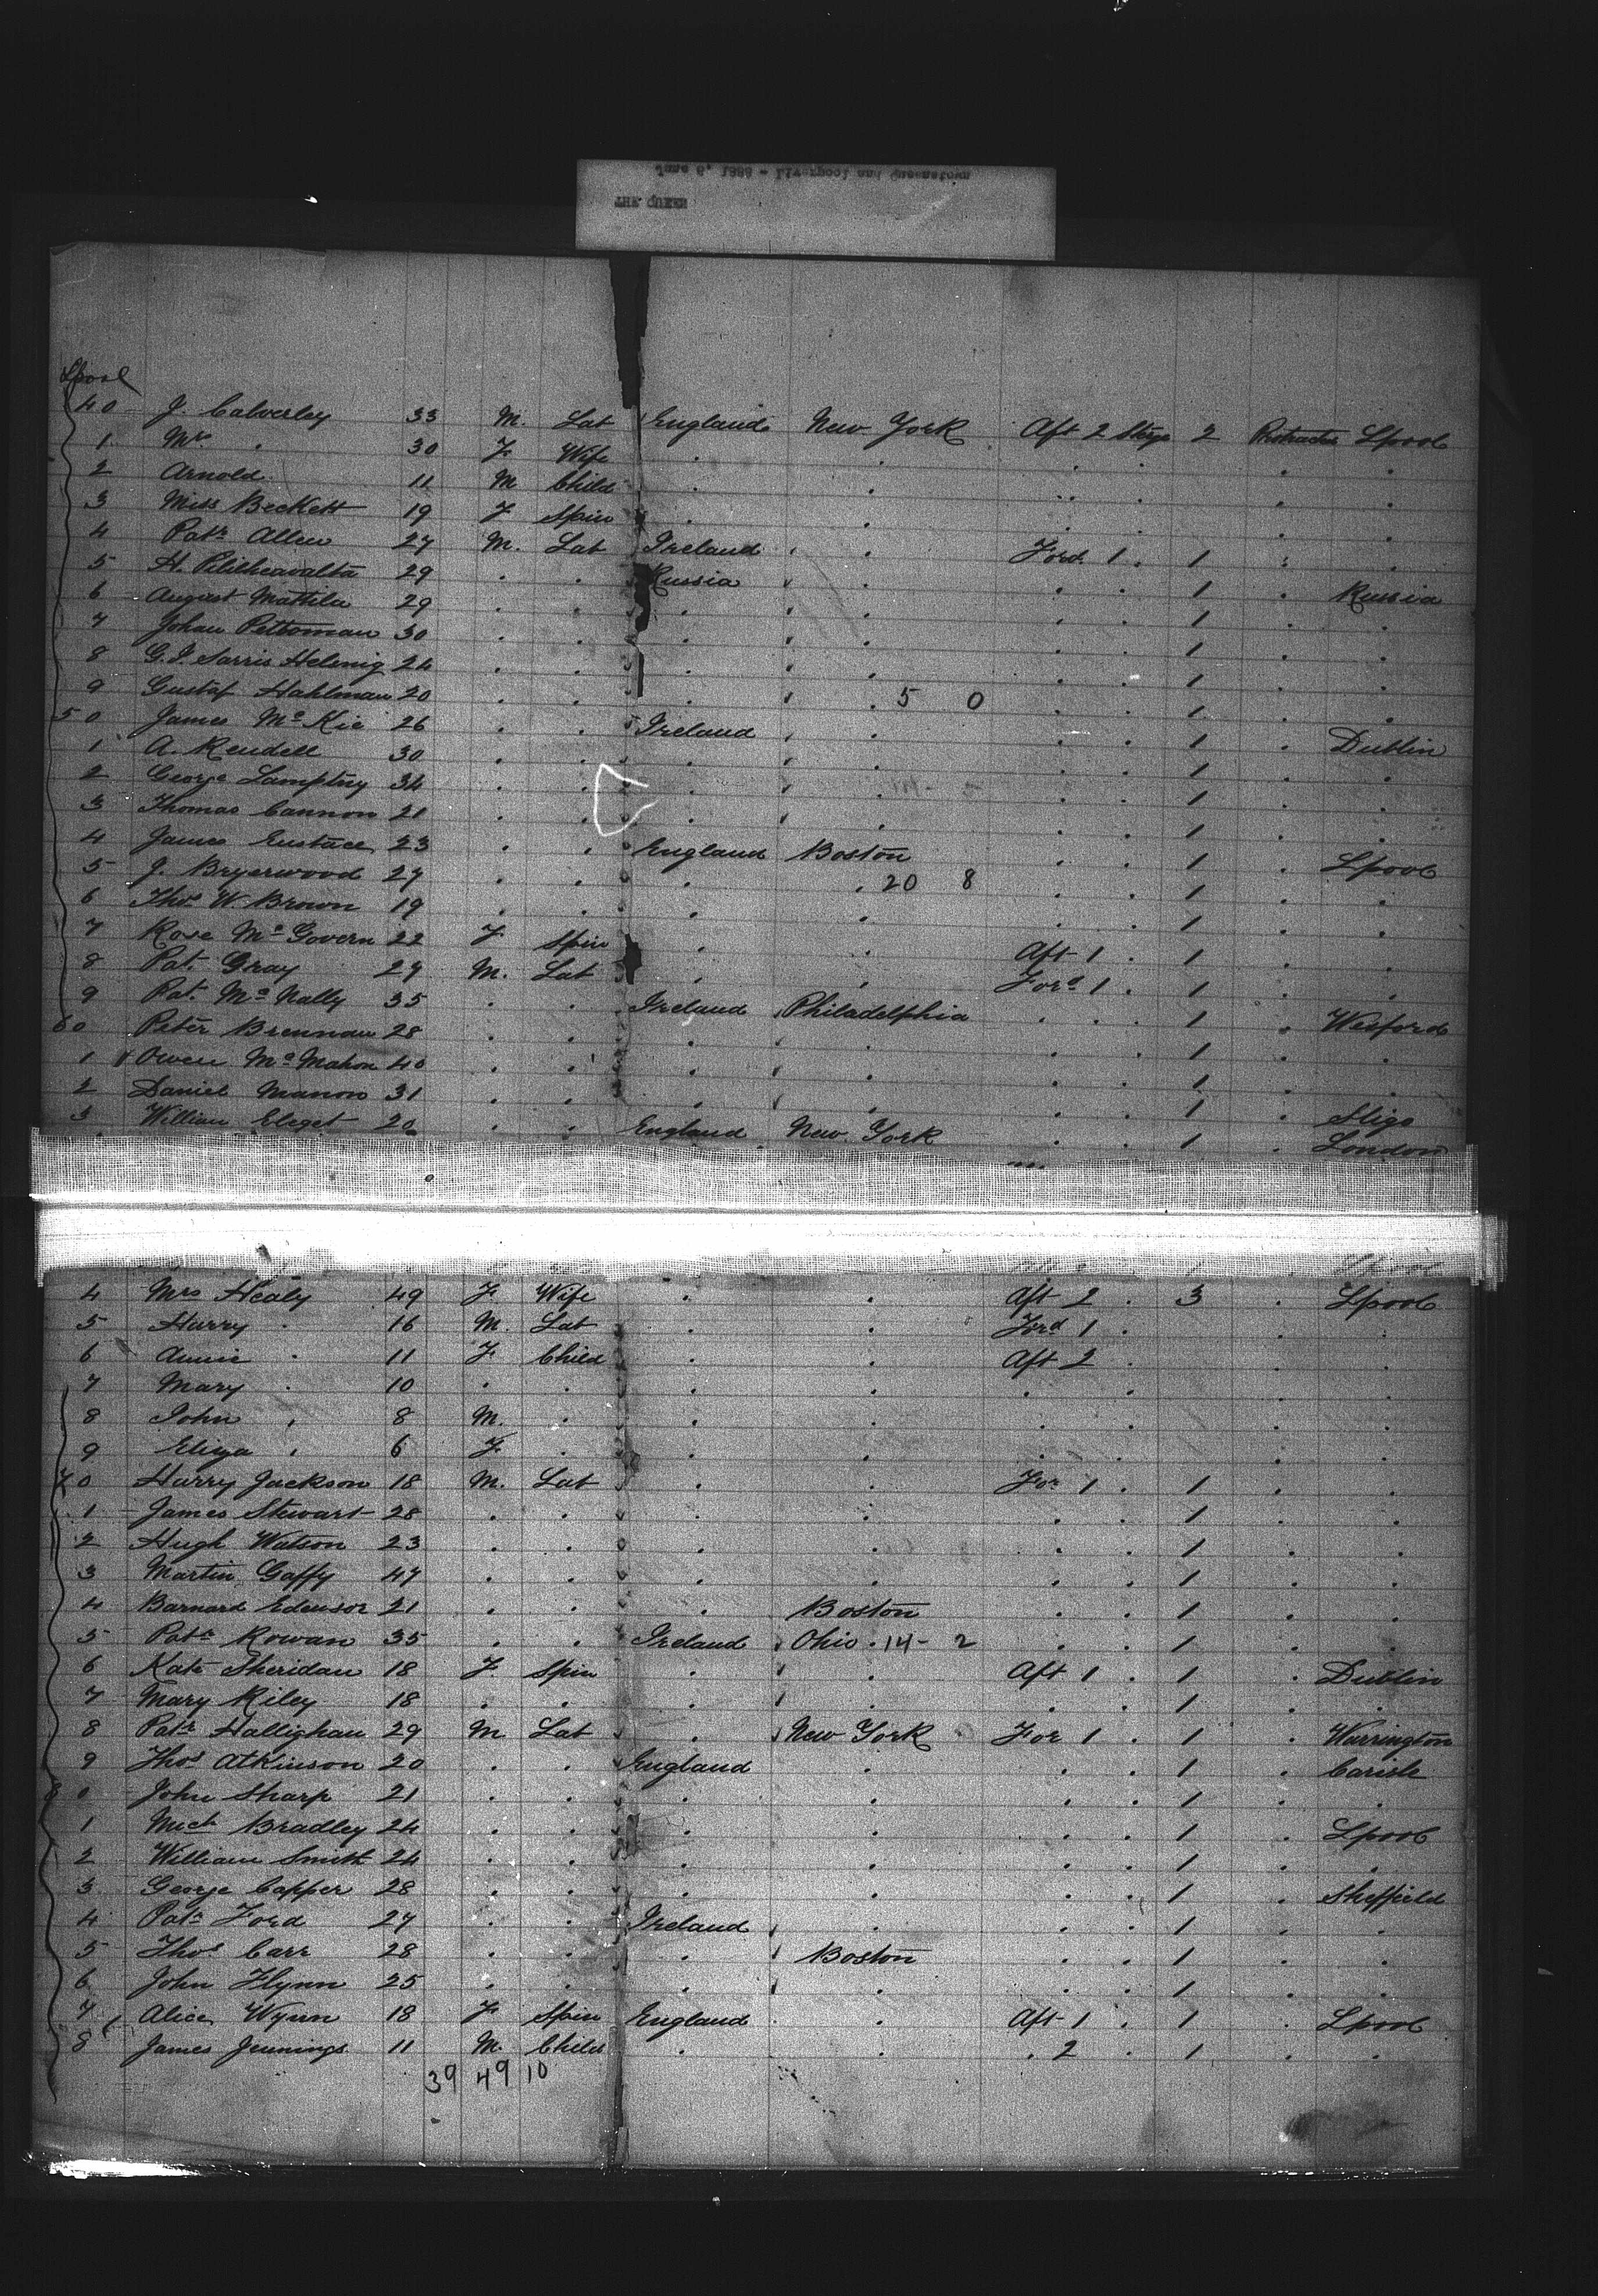 June 8, 1888 - Liverpool and Queenstown
THE QUEEN
Lpool
40 J. Calverley 33 M. Lab England New York Aft 2 Stge 2 Lpool
1 Mrs . 30 F Wife . . . . . .
2 Arnold . 11 M Child . . . . . .
3 Miss Beckett 19 F Spin . . . . .
4 Patk Allen 27 M. Lab Ireland . . Ford 1 . 1 . .
5 29 . . Russia . . . . 1 . Russia
6 August Mattila 29 . . . . . . 1 . .
7 Johan 30 . . . . . . 1 . .
8 G.J. Sarris 24 . . . . . . 1 . .
9 Gustaf Hahlman 20 . . . . 5 0 . . 1 . .
50 James Mc Kie 26 . . Ireland . . . . 1 . Dublin
1 A. Rendell 30 . . . . . . 1 . .
2 George 34 . . . . . . 1 . .
3 Thomas Cannon 21 . . . . . . 1 . .
4 James Eustace 23 . . England Boston . . 1 . Lpool
5 J. Bryerwood 27 . . . . 20 8 . . 1 . .
6 Thos W. Brown 19 . . . . . . 1 . .
7 Rose Mc Govern 22 F Spin . . Aft 1 . 1 . .
8 Pat. Gray 27 M. Lab . . Ford 1 . 1 . .
9 Pat. Mc Nally 35 . . Ireland Philadelphia . . 1 . Wexford
60 Peter Brennan 28 . . . . . . 1 . .
1 Owen Mc Mahon 40 . . . . . . 1 . .
2 Daniel 31 . . . . . . 1 . Sligo
3 William 20 . . England New York . . 1 . London
4 Mrs Healy 49 F Wife . . Aft 2 . 3 . Lpool
5 Harry . 16 M. Lab . . Ford 1 . .
6 Annie . 11 F Child . . Aft 2 . .
7 Mary . 10 . . . . . . .
8 John . 8 M. . . . . . .
9 Eliza . 6 F . . . . . .
70 Harry Jackson 18 M. Lab . . For 1 . 1 . .
1 James Stewart 28 . . . . . . 1 . .
2 Hugh Watson 23 . . . . . . 1 . .
3 Martin Gaffy 47 . . . . . . 1 . .
4 Barnard Edensor 21 . . . Boston . . 1 . .
5 Patk Rowan 35 . . Ireland Ohio . 14 - 2 . . 1 . .
6 Kate Sheridan 18 F Spin . . Aft 1 . 1 . Dublin
7 Mary Riley 18 . . . . . . 1 . .
8 Patk Hallighan 29 M Lab . New York For 1 . 1 . Warrington
9 Thos Atkinson 20 . . England . . . 1 . Carisle
80 John Sharp 21 . . . . . . 1 . .
1 Mich Bradley 24 . . . . . . 1 . Lpool
2 William Smith 24 . . . . . . 1 . .
3 George Capper 28 . . . . . . 1 . Sheffield
4 Patk Ford 27 . . Ireland . . . 1 . .
5 Thos Carr 28 . . . Boston . . 1 . .
6 John Flynn 25 . . . . . . 1 . .
7 Alice Wynn 18 F Spin England . Aft 1 . 1 . Lpool
8 James Jennings 11 M. Child . . . 2 . 1 . .
39 49 10